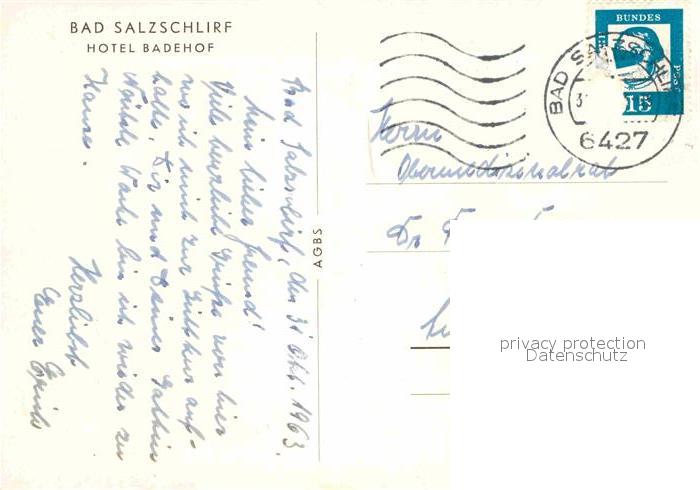 BAD SALZSCHLIRF
HOTEL BADEHOF
Bad Salzschlirf, den 31. Okt. 1963.
Mein lieber Freund!
Viele herzliche Grüsse von hier
wo ich mich zur Kur auf-
halte, Dir und Deiner Gattin
Nächste Woche bin ich wieder zu
Hause.
Herzlichst
Euer
AGBS
Herrn
Obermedizinalrat
Dr.
BUNDES
POST
15
BAD SALZSCHLIRF
6427
privacy protection
Datenschutz